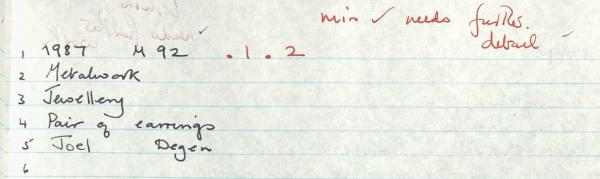 min ✓ needs further.
detail
1 1987 M 92 .1.2
2 Metalwork
3 Jewellery
4 Pair of earrings
5 Joel Degen
6